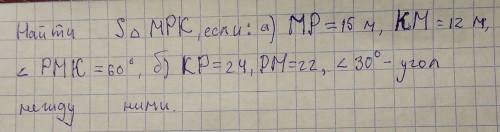 Найти S△ MPK, если: а) MP = 15 м, KM = 12 м,
∠ PMK = 60°, б) KP = 24, PM = 22, ∠ 30° - угол
между ними.